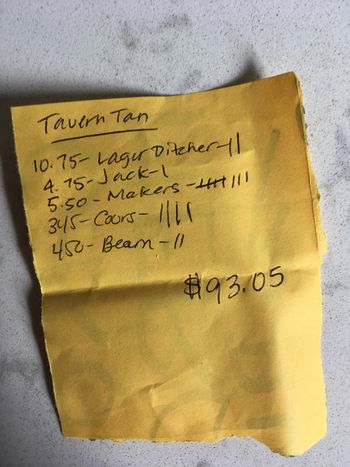 Tavern Tan
10.75 - Lager Pitcher - ||
4.75 - Jack - |
5.50 - Makers - 卌 |||
345 - Coors - ||||
450 - Beam - ||
$93.05